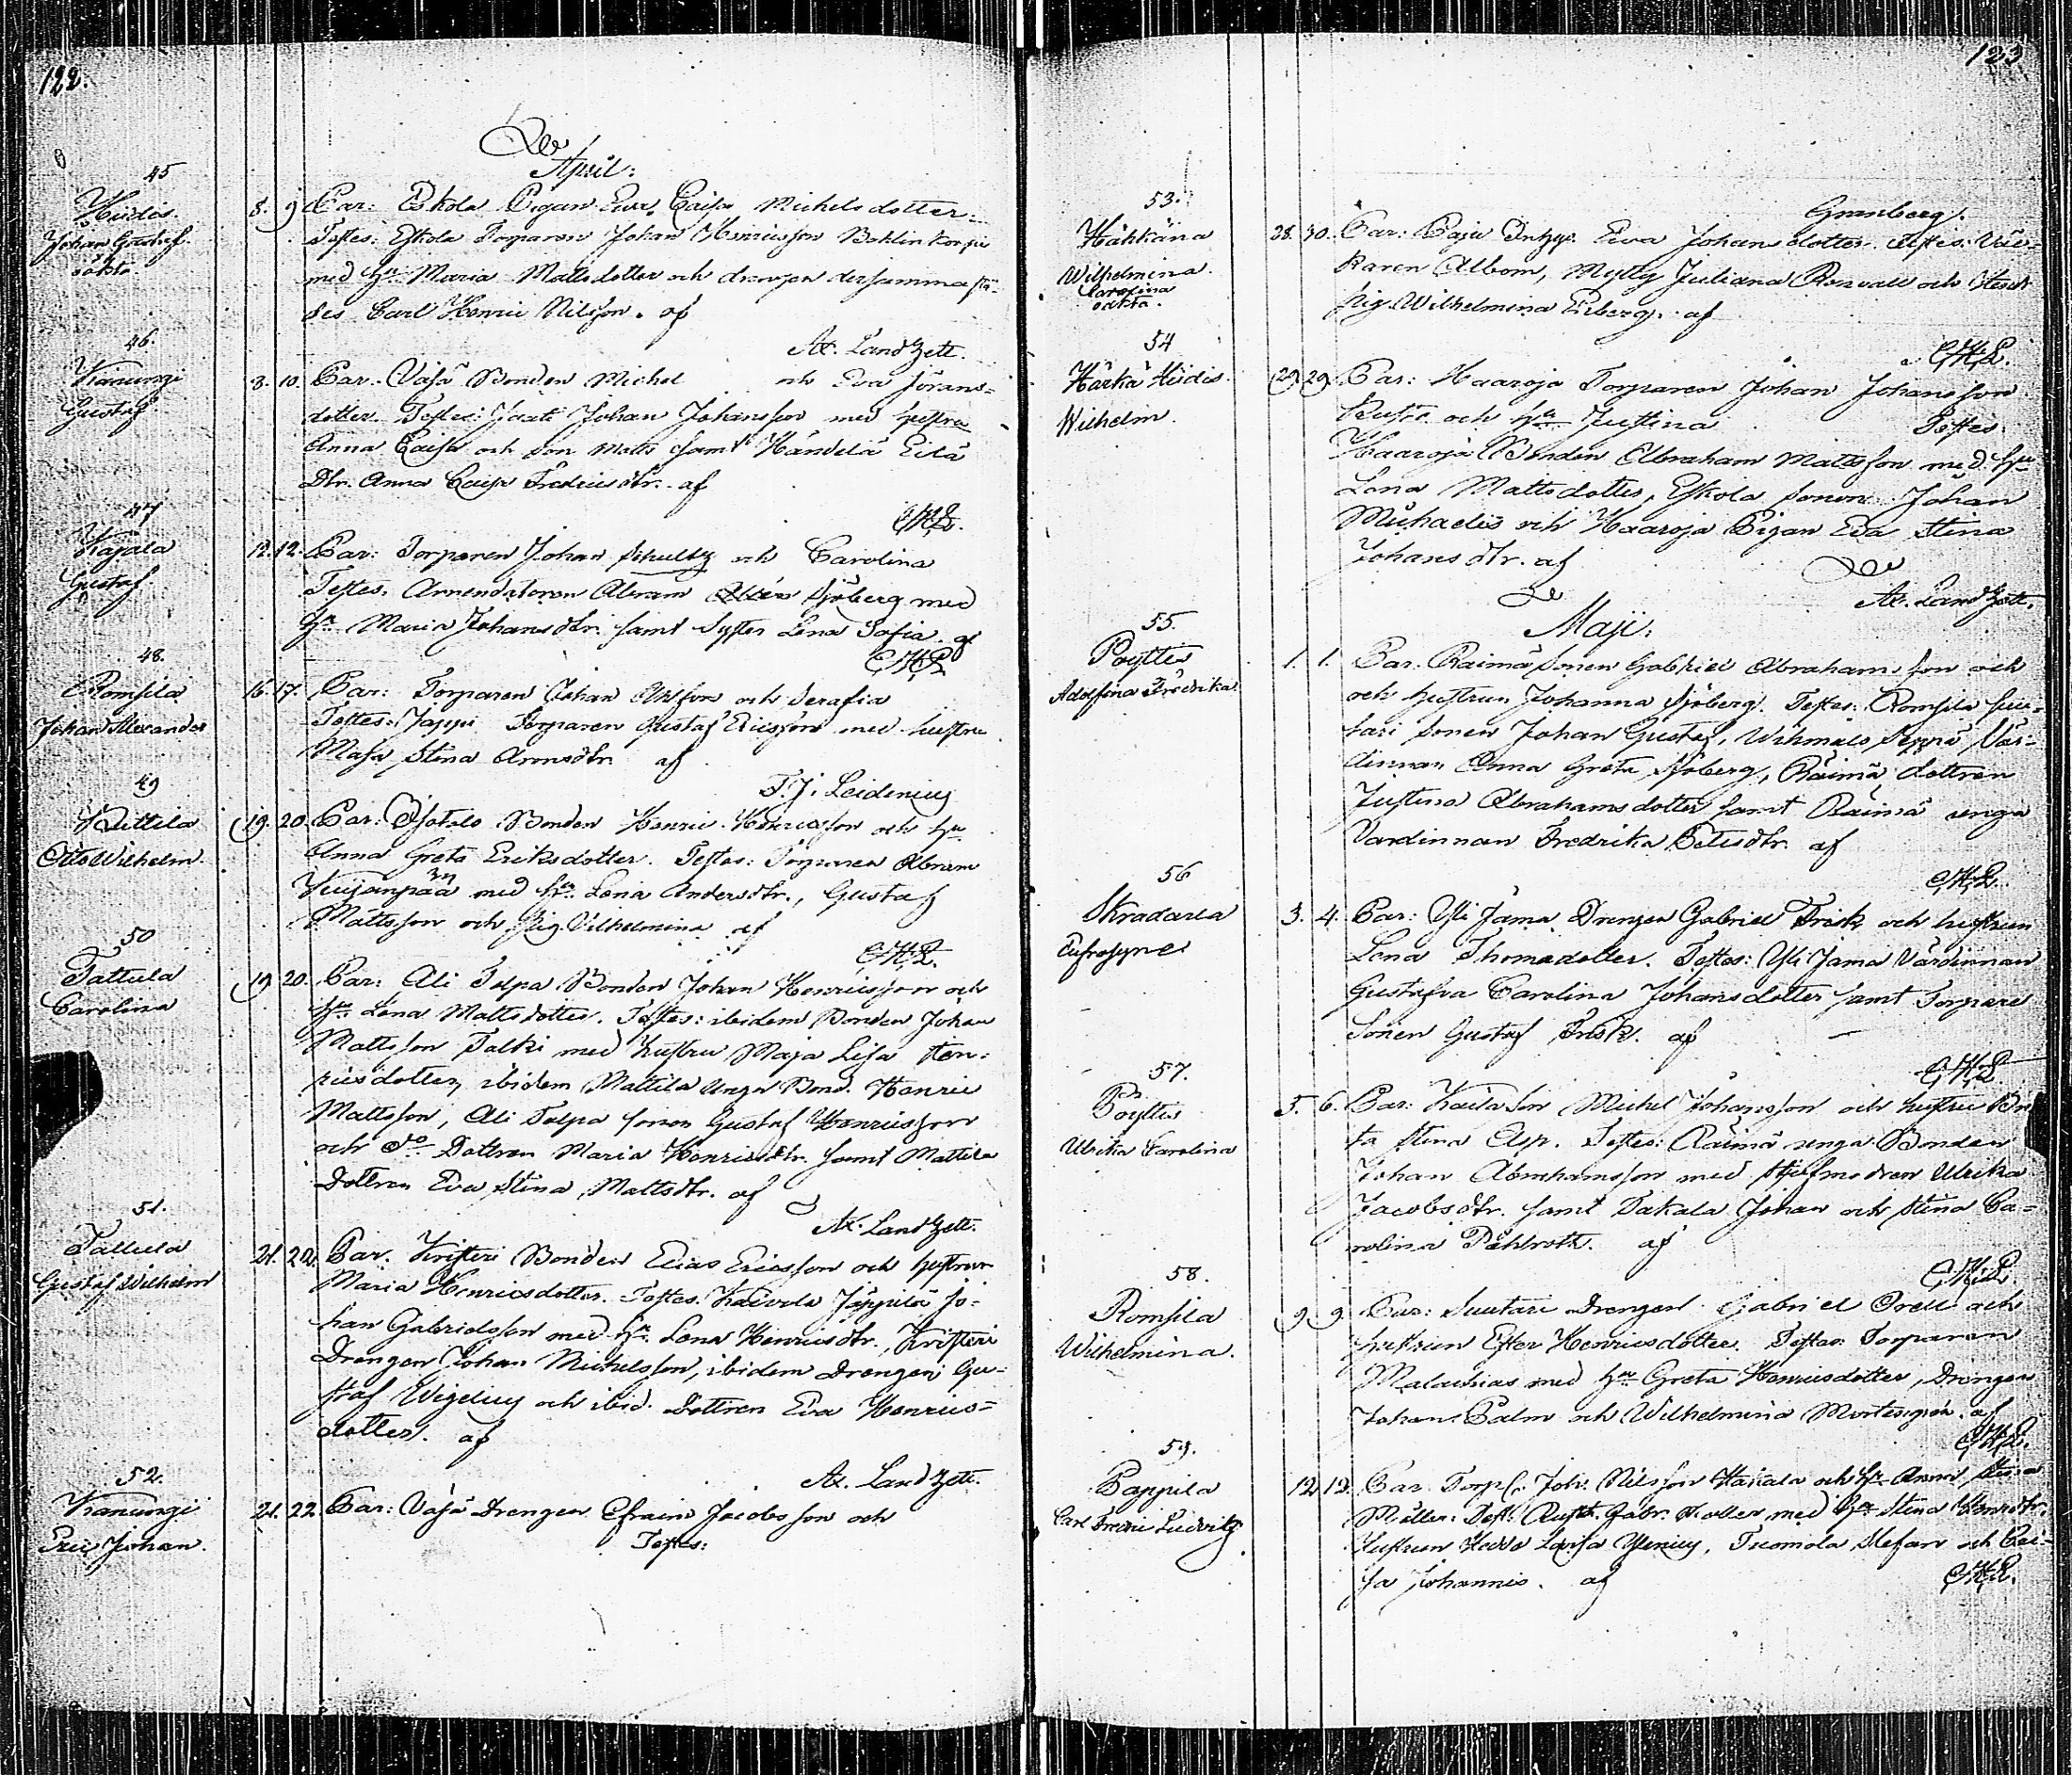 122.
April:
45
Hiidis.
Johan Gustaf.
oäkta
8. 9 Par: Eskola Pigan Eva Caisa Michelsdotter.
Testes: Eskola Torparen Johan Henricsson Böhlin korpi
med hu Maria Mattsdotter och drengen dersammastä-
des Carl Henric Nilsson. af
Ax. LandZett.
46.
Kanungi
Gustaf
8. 10. Par: Väsä Bonden Michel och Eva Jörans-
dotter. Testes: Johan Johansson med hustru
Anna Caisa och son Matts samt Händelä Eilä
Dtr. Anna Caisa Fredricsdtr. af
CHL.
47
Kajala
Gustaf
12. 12. Par: Torparen Johan Schultz och Carolina
Testes: Arrendatoren Abram Sjöberg med
hu Maria Johansdtr. samt Syster Lena Sofia. af
CHL
48.
Romsila
Johan Alexander
16. 17. Par: Torparen Johan och Serafia
Testes: Jappi Torparen Gustaf Ericsson med hustru
Maja Stina af
F. J. Leidenius
49
Kittila
Otto Wilhelm.
19. 20. Par: Isotalo Bonden Henric Henricsson och hu
Anna Greta Eriksdotter. Testes: Torparen Abram
med hu Lena Andersdtr., Gustaf
Mattsson och Pig. Vilhelmina af
CHL.
50
Tattula
Carolina
19. 20. Par: Ali Talpa Bonden Johan Henricsson och
hu Lena Mattsdotter. Testes: ibidem Bonden Johan
Mattsson Talki med hustru Maja Lisa Hen-
ricsdotter, ibidem Mattila unga Bond. Henric
Mattsson, Ali Talpa sonen Gustaf Henricsson
och Do Dottren Maria Henricsdtr. samt Mattila
dottren Eva Stina Mattsdtr. af
Ax. LandZett.
51.
Tattula
Gustaf Wilhelm
21. 22. Par: Kristeri Bonden Elias Ericsson och hustrun
Maria Henricsdotter. Testes: Kaivola Jäppilä Jo-
han Gabrielsson med hu Lena Henricsdtr., Kristeri
Drengen Johan Michelsson, ibidem Drengen Gu-
staf Wigelius och ibid. Dottren Eva Henrics-
dotter. af
Ax. LandZett.
52.
Kanungi
Eric Johan.
21. 22. Par: Väsä Drengen Efraim Jacobsson och
Testes:
123
53.
Hähkänä
Wilhelmina
Carolina
oäkta.
Grenberg.
28. 30. Par: Paju Inhys. Eva Johansdotter. Testes:
karen Albom, Mylly Juliana Rosvall och
pig. Wilhelmina af
CHL.
54
Härkä Hiidis.
Wilhelm.
29. 29. Par: Haaroja Torparen Johan Johansson
och hu Justina Testes:
Haaroja Bonden Abraham Mattsson med hu
Lena Mattsdotter, Eskola sonen Johan
Michaelis och Haaroja Pigan Eva Stina
Johansdtr. af
Ax. LandZett.
Maji:
55.
Pöyttis
Adolfina Fredrika
1. 1. Par: Raimä Sonen Gabriel Abrahamsson och
och hustrun Johanna Sjöberg. Testes: Romsila
sari sonen Johan Gustaf, Wihmalo Seppä Vär-
dinnan Anna Greta Sjöberg, Raimä dottren
Justina Abrahamsdotter samt Raimä unga
Värdinnan Fredrika Petersdtr. af
CHL.
56
Skradarla
Eufrosyne
3. 4. Par: Yli Jama Drengen Gabriel Frisk och hustrun
Lena Thomadotter. Testes: Yli Jama Värdinnan
Gustafva Carolina Johansdotter samt Torpare
Sonen Gustaf Frisk. af
CHL
57.
Pöyttis
Ulrika Carolina
5. 6. Par: Kaila Son Michel Johansson och hustru Bri-
ta Stina Asp. Testes: Raimä unga Bonden
Johan Abrahamsson med Styfmodren Ulrika
Jacobsdtr. samt Takala Johan och Stina Ca-
rolina Påhlroth. af
CHL
58.
Romsila
Wilhelmina.
9. 9. Par: Suutari Drengen Gabriel Orell och
hustrun Ester Henricsdotter. Testes: Torparen
Malachias med hu Greta Henricsdotter, Drengen
Johan Palm och Wilhelmina af
CHL.
59.
Pappila
Carl Fredric Ludvig
12. 12. Par. Torp. Joh. Nilsson Hakala och hu Anna Stina
Möller. Test: Rusth. Gabr. Moller med hu Stina Henrdtr.,
Hustrun Hedda Lovisa Ylenius, Tuomola Stefan och Cai-
sa Johannis. af
CHL.